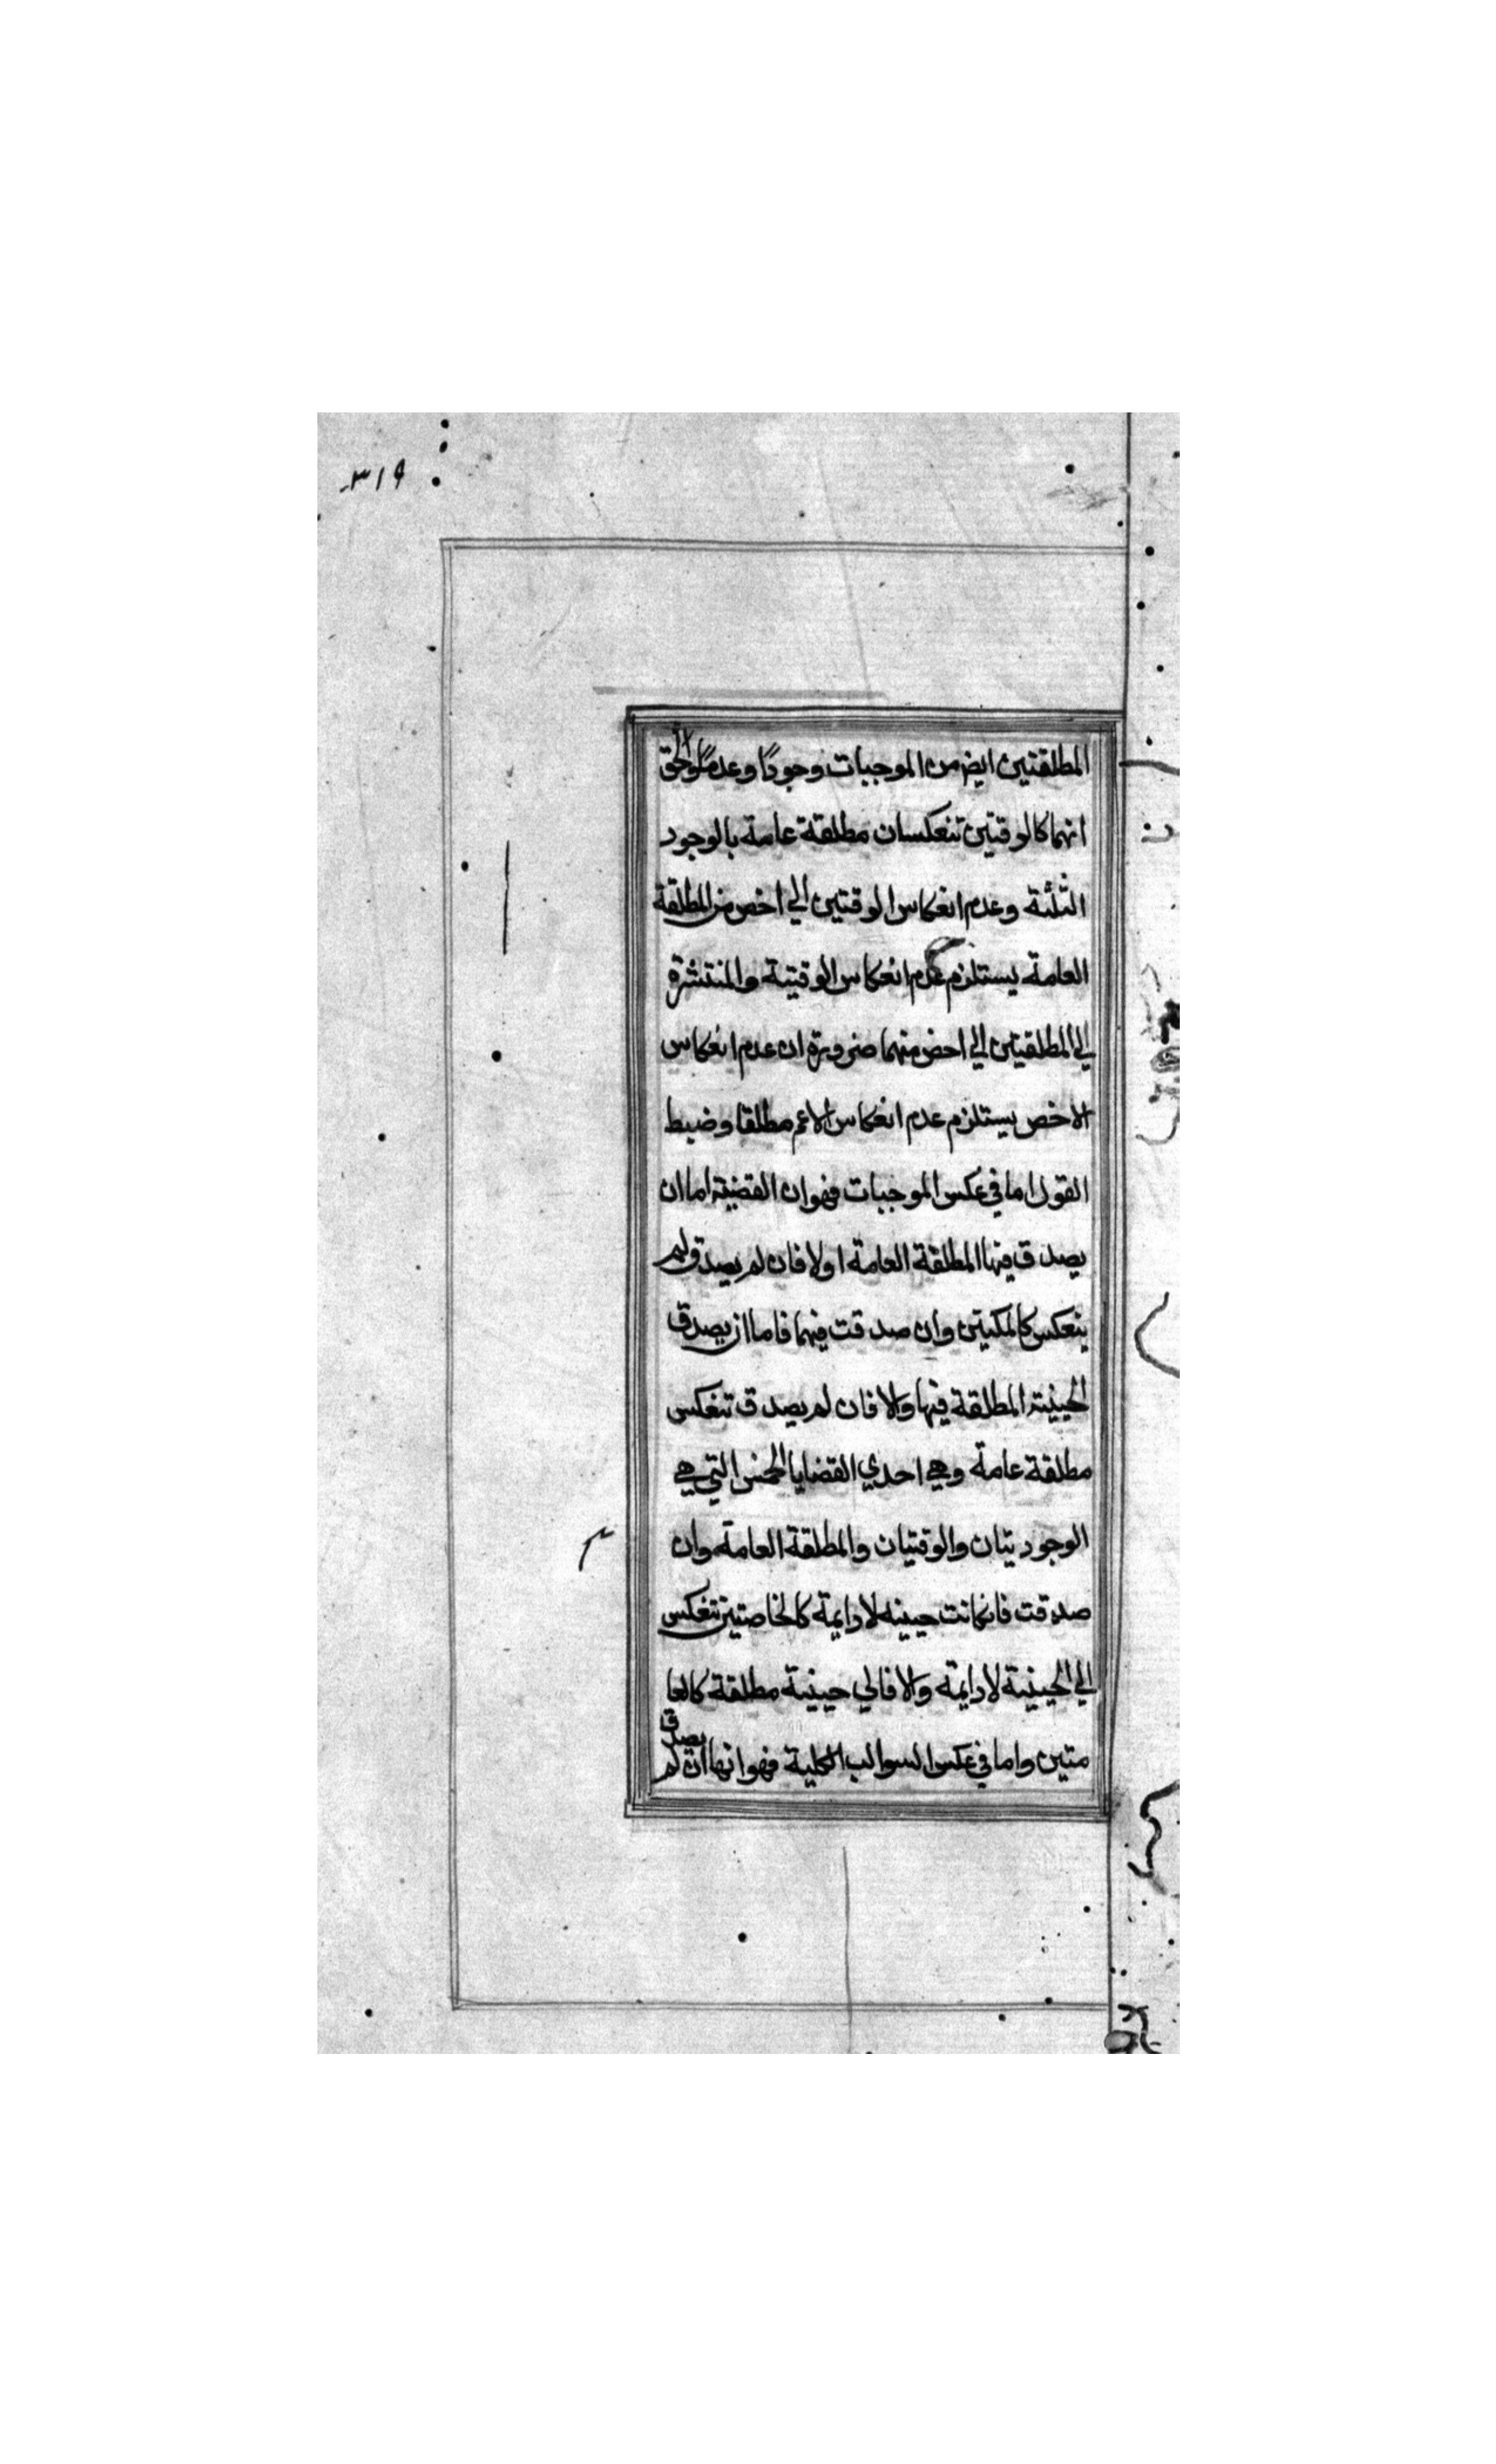 ٣١٩
المطلقتين ايض من الموجبات وجودًا وعدمًا والحق
انهما كالوقتين تنعكسان مطلقة عامة بالوجود
الثلثة وعدم انعكاس الوقتين الي اخص من المطلقة
العامة يستلزم عدم انعكاس الوقتية والمنتشرة
الي المطلقيتين الي احض منهما ضرورة ان عدم انعكاس
الاخص يستلزم عدم انعكاس الاعم مطلقا وضبط
القول اما في عكس الموجبات فهو ان القضية اما ان
يصدق فيها المطلقة العامة اولا فان لم يصدق لم
ينعكس كالمكنتين وان صدقت فيهما فاما ان يصدق
الحينية المطلقة فيها والا فان لم يصدق تنعكس
مطلقة عامة وهي احدي القضايا الخمس التي هي
الوجوديتان والوقتيان والمطلقة العامة وان
صدقت فانكانت حينيه لادايمة كالخاصتين تنعكس
الي الحينية لادايمة والا فالي حينية مطلقة كالعا
متين واما في عكس السوالب الكلية فهو انها ان لم يصدق